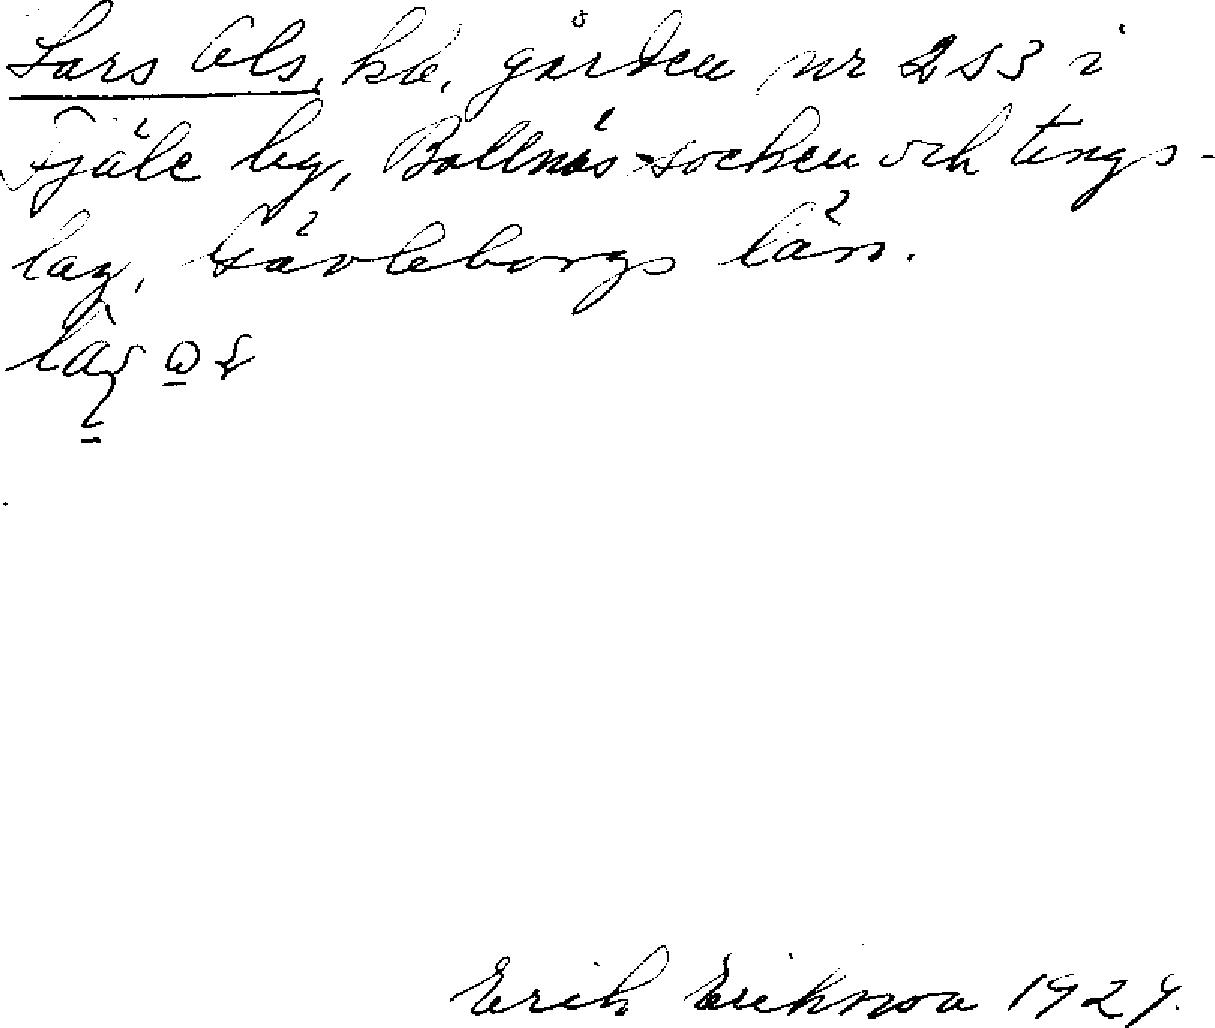 Lars Ols, kb, gården nr 2 S3 i
Fjäle by, Bollnäs socken och tings-
lag, Gävleborgs län.
Erik Erikson 1929.